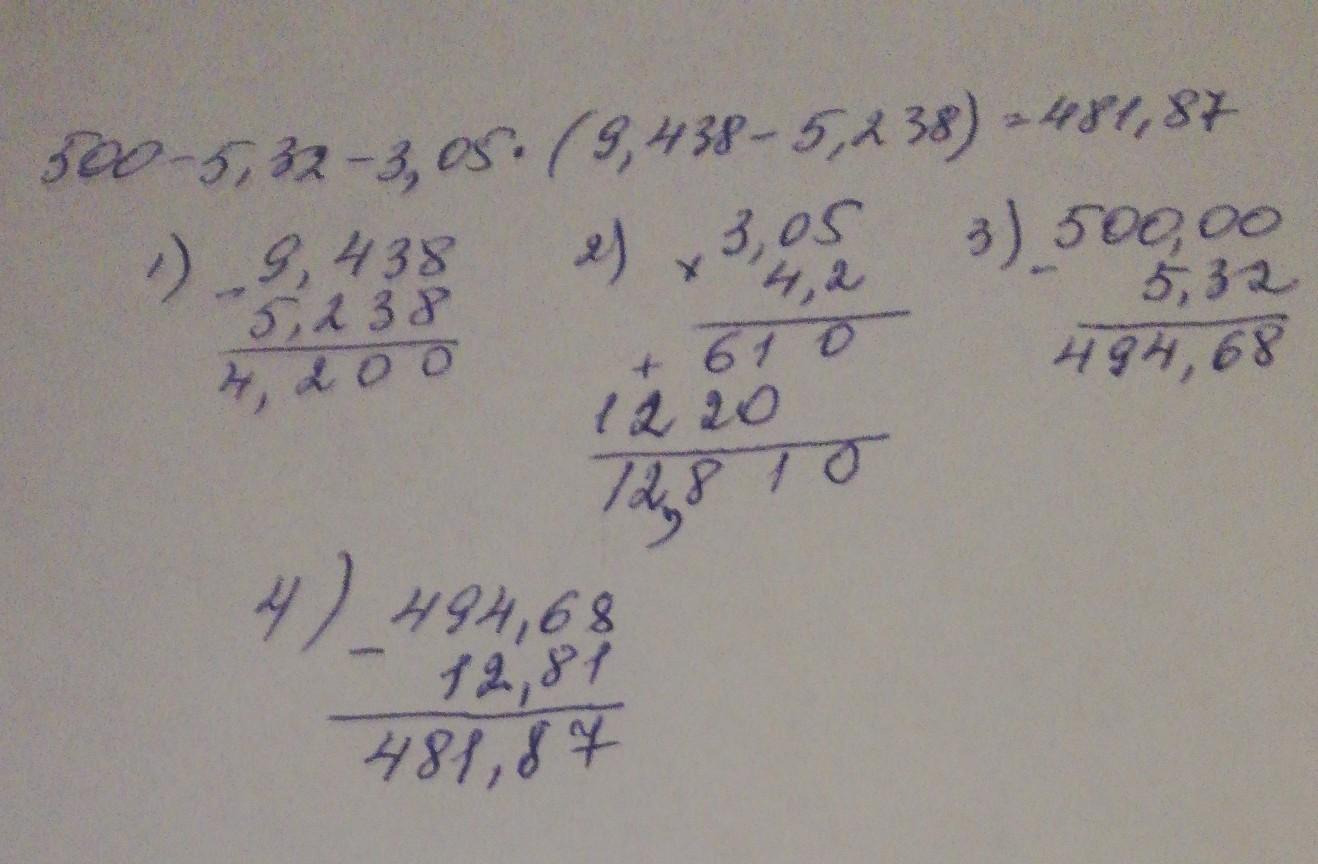 500-5,32-3,05·(9,438-5,238)=481,87
1) -9,438
5,238
4,200
2) ×3,05
4,2
+ 610
1220
12,810
3) -500,00
5,32
494,68
4) -494,68
12,81
481,87